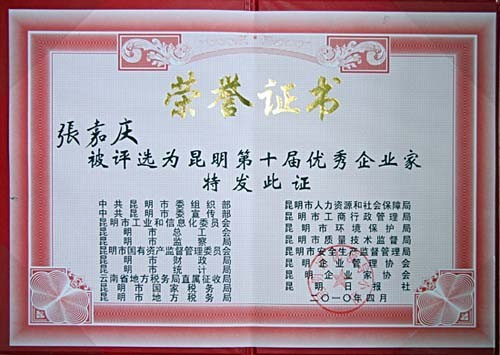 荣誉证书
張嘉庆
被评选为昆明第十届优秀企业家
特发此证
中共昆明市委组织部
中共昆明市委宣传部
昆明市工业和信息化委员会
昆明市总工会
昆明市监察局
昆明市国有资产监督管理委员会
昆明市财政局
昆明市统计局
云南省地方税务局直属征收局
昆明市国家税务局
昆明市地方税务局
昆明市人力资源和社会保障局
昆明市工商行政管理局
昆明市环境保护局
昆明市质量技术监督局
昆明市安全生产监督管理局
昆明企业管理协会
昆明企业家协会
昆明日报社
二〇一〇年四月